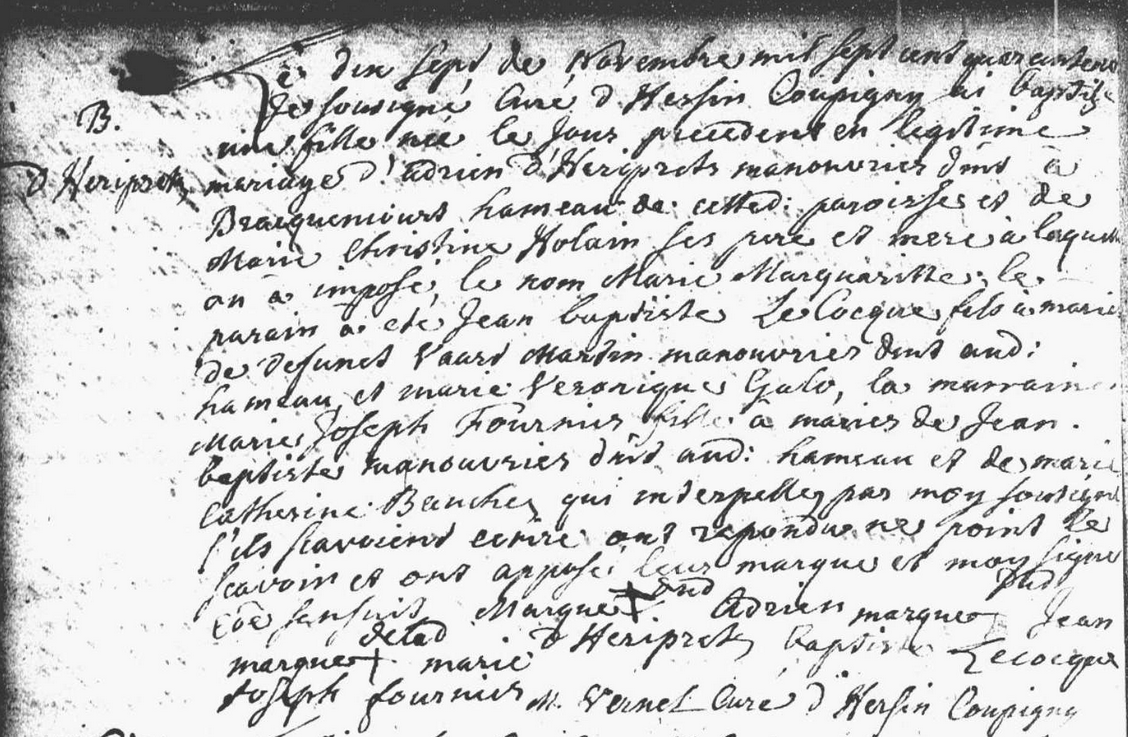 Le dix sept de Novembre mil sept cent quarante
Je sousigné Curé d'Hersin Coupigny ai baptizé
B.
une fille née le Jour precedent en legitime
d'Heriprets mariage d'adrien d'Heriprets manouvrier dmt à
Bracquencourt hameau de cetted: paroisse et de
Marie Christine Holain ses pere et mere à laquelle
on a imposé le nom Marie Marguaritte; le
parain a eté Jean baptiste Le Cocque fils à marier
de defunct Vaast Martin manouvrier dmt aud:
hameau et marie Veronique Galo, la marraine
Marie Joseph Fournier fille à marier de Jean
baptiste manouvrier dmt aud: hameau et de marie
Catherine Bauchez qui interpellez par moy sousigné
s'ils scavoient ecrire ont repondu ne point le
scavoir et ont apposé leur marque et moy signé
Coe sensuit Marque + dud Adrien marque dud Jean
marque + delad marie d'Heriprets baptiste Lecocque
Joseph fournier M. Vernel Curé d'Hersin Coupigny